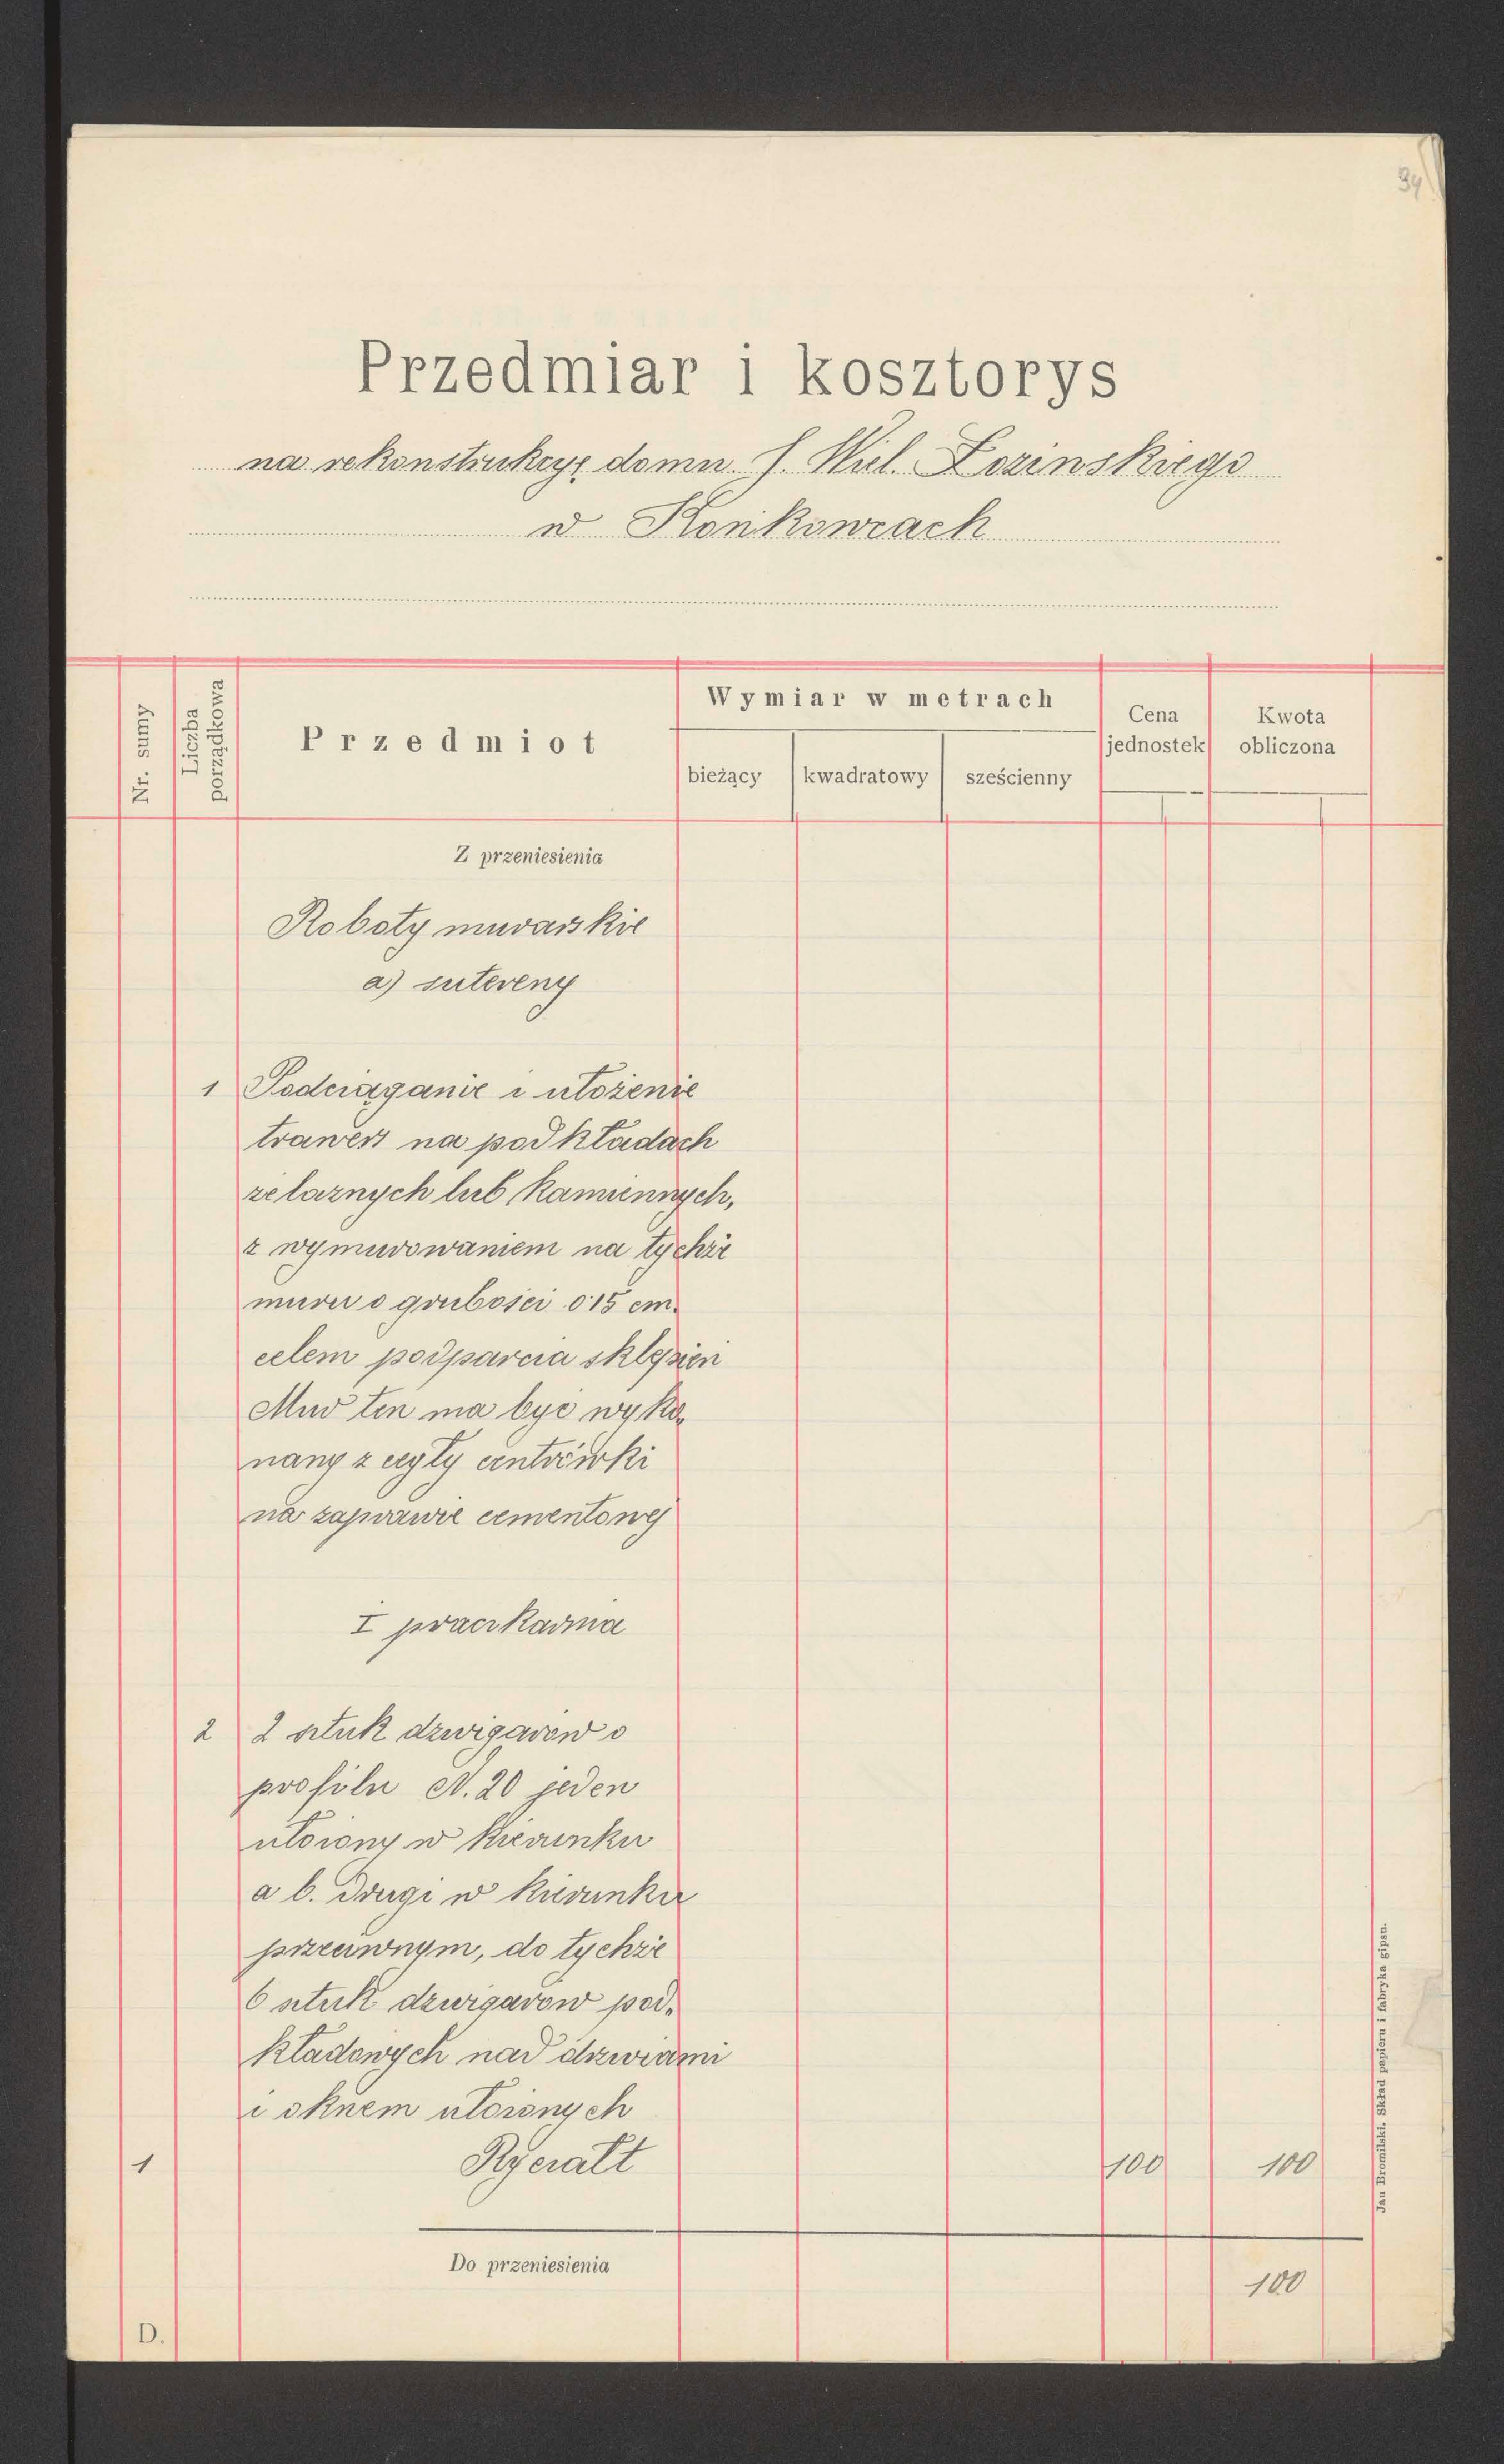 34
Przedmiar i kosztorys
na rekonstrukcyę domu J. Wiel. Łozinskiego
w Konkowcach
Nr. sumy
Liczba
porządkowa
Przedmiot
Wymiar w metrach
bieżący
kwadratowy
sześcienny
Cena
jednostek
Kwota
obliczona
Z przeniesienia
Roboty murarskie
a) sutereny
1 Podciąganie i ułożenie
trawers na podkładach
żelaznych lub kamiennych,
z wymurowaniem na tychże
muru o grubości 0.15 cm.
celem podparcia sklepien
Mur ten ma byc wyko,
nany z cegły centrówki
na zaprawie cementowej
I praczkarnia
2 2 sztuk dzwigarow o
profilu N. 20 jeden
ułożony w kierunku
a b. drugi w kierunku
przeciwnym, do tychże
6 sztuk dzwigarow pod,
kładowych nad drzwiami
i oknem ułożonych
1 Ryczałt 100 100
Do przeniesienia 100
D.
Jan Bromilski. Skład papieru i fabryka gipsu.